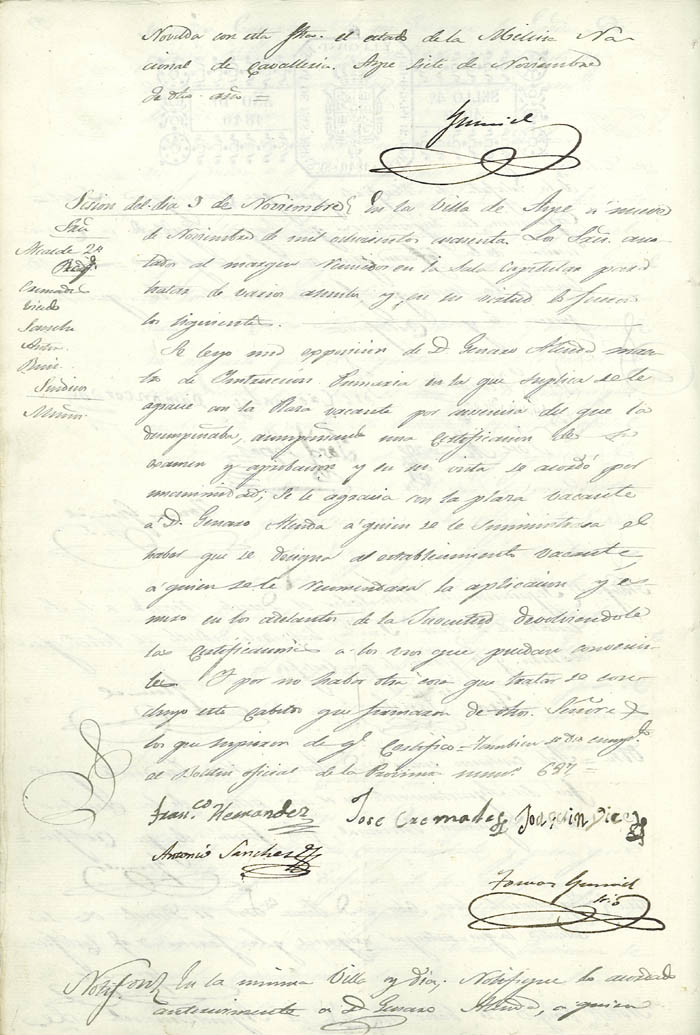 Novelda con esta fha. el estado de la Milicia Na-
cional de Cavalleria. Aspe siete de Noviembre
de dho año =
Gumiel
Sesion del dia 9 de Noviembre
En la Villa de Aspe á nueve
de Noviembre de mil ochocientos cuarenta. Los Sres. ano-
tados al margen reunidos en la Sala Capitular para
tratar de varios asuntos y en su virtud lo fueron
los siguientes.
Sres.
Alcalde 2º
Regs.
Cremades
Sanchez
Sindico
Se leyo una exposicion de D. Genaro Alenda maes-
tro de Instruccion Primaria en la que suplica se le
agracie con la Plaza vacante por ausencia del que la
desempeñaba, acompañando una certificacion de su
examen y aprobacion y en su vista se acordó por
unanimidad; Se le agracia con la plaza vacante
á D. Genaro Alenda á quien se le suministrara el
haber que se designa al establecimiento vacante,
á quien se le recomendara la aplicacion y es-
mero en los adelantos de la Juventud devolviendole
las certificaciones á los usos que puedan convenir-
le. Y por no haber otra cosa que tratar se con-
cluyo este cabildo que firmaron de dhos. Señores
los que supieron de q. Certifico = Tambien se dio cumpto.
al Boletin oficial de la Provincia num. 687 =
Franco. Hernandez Jose Cremades Joaquin
Antonio Sanchez
Tomas Gumiel
Srio
Notifon. En la misma Villa y dia; Notifique lo acordado
anteriormente a D. Genaro Alenda, a quien